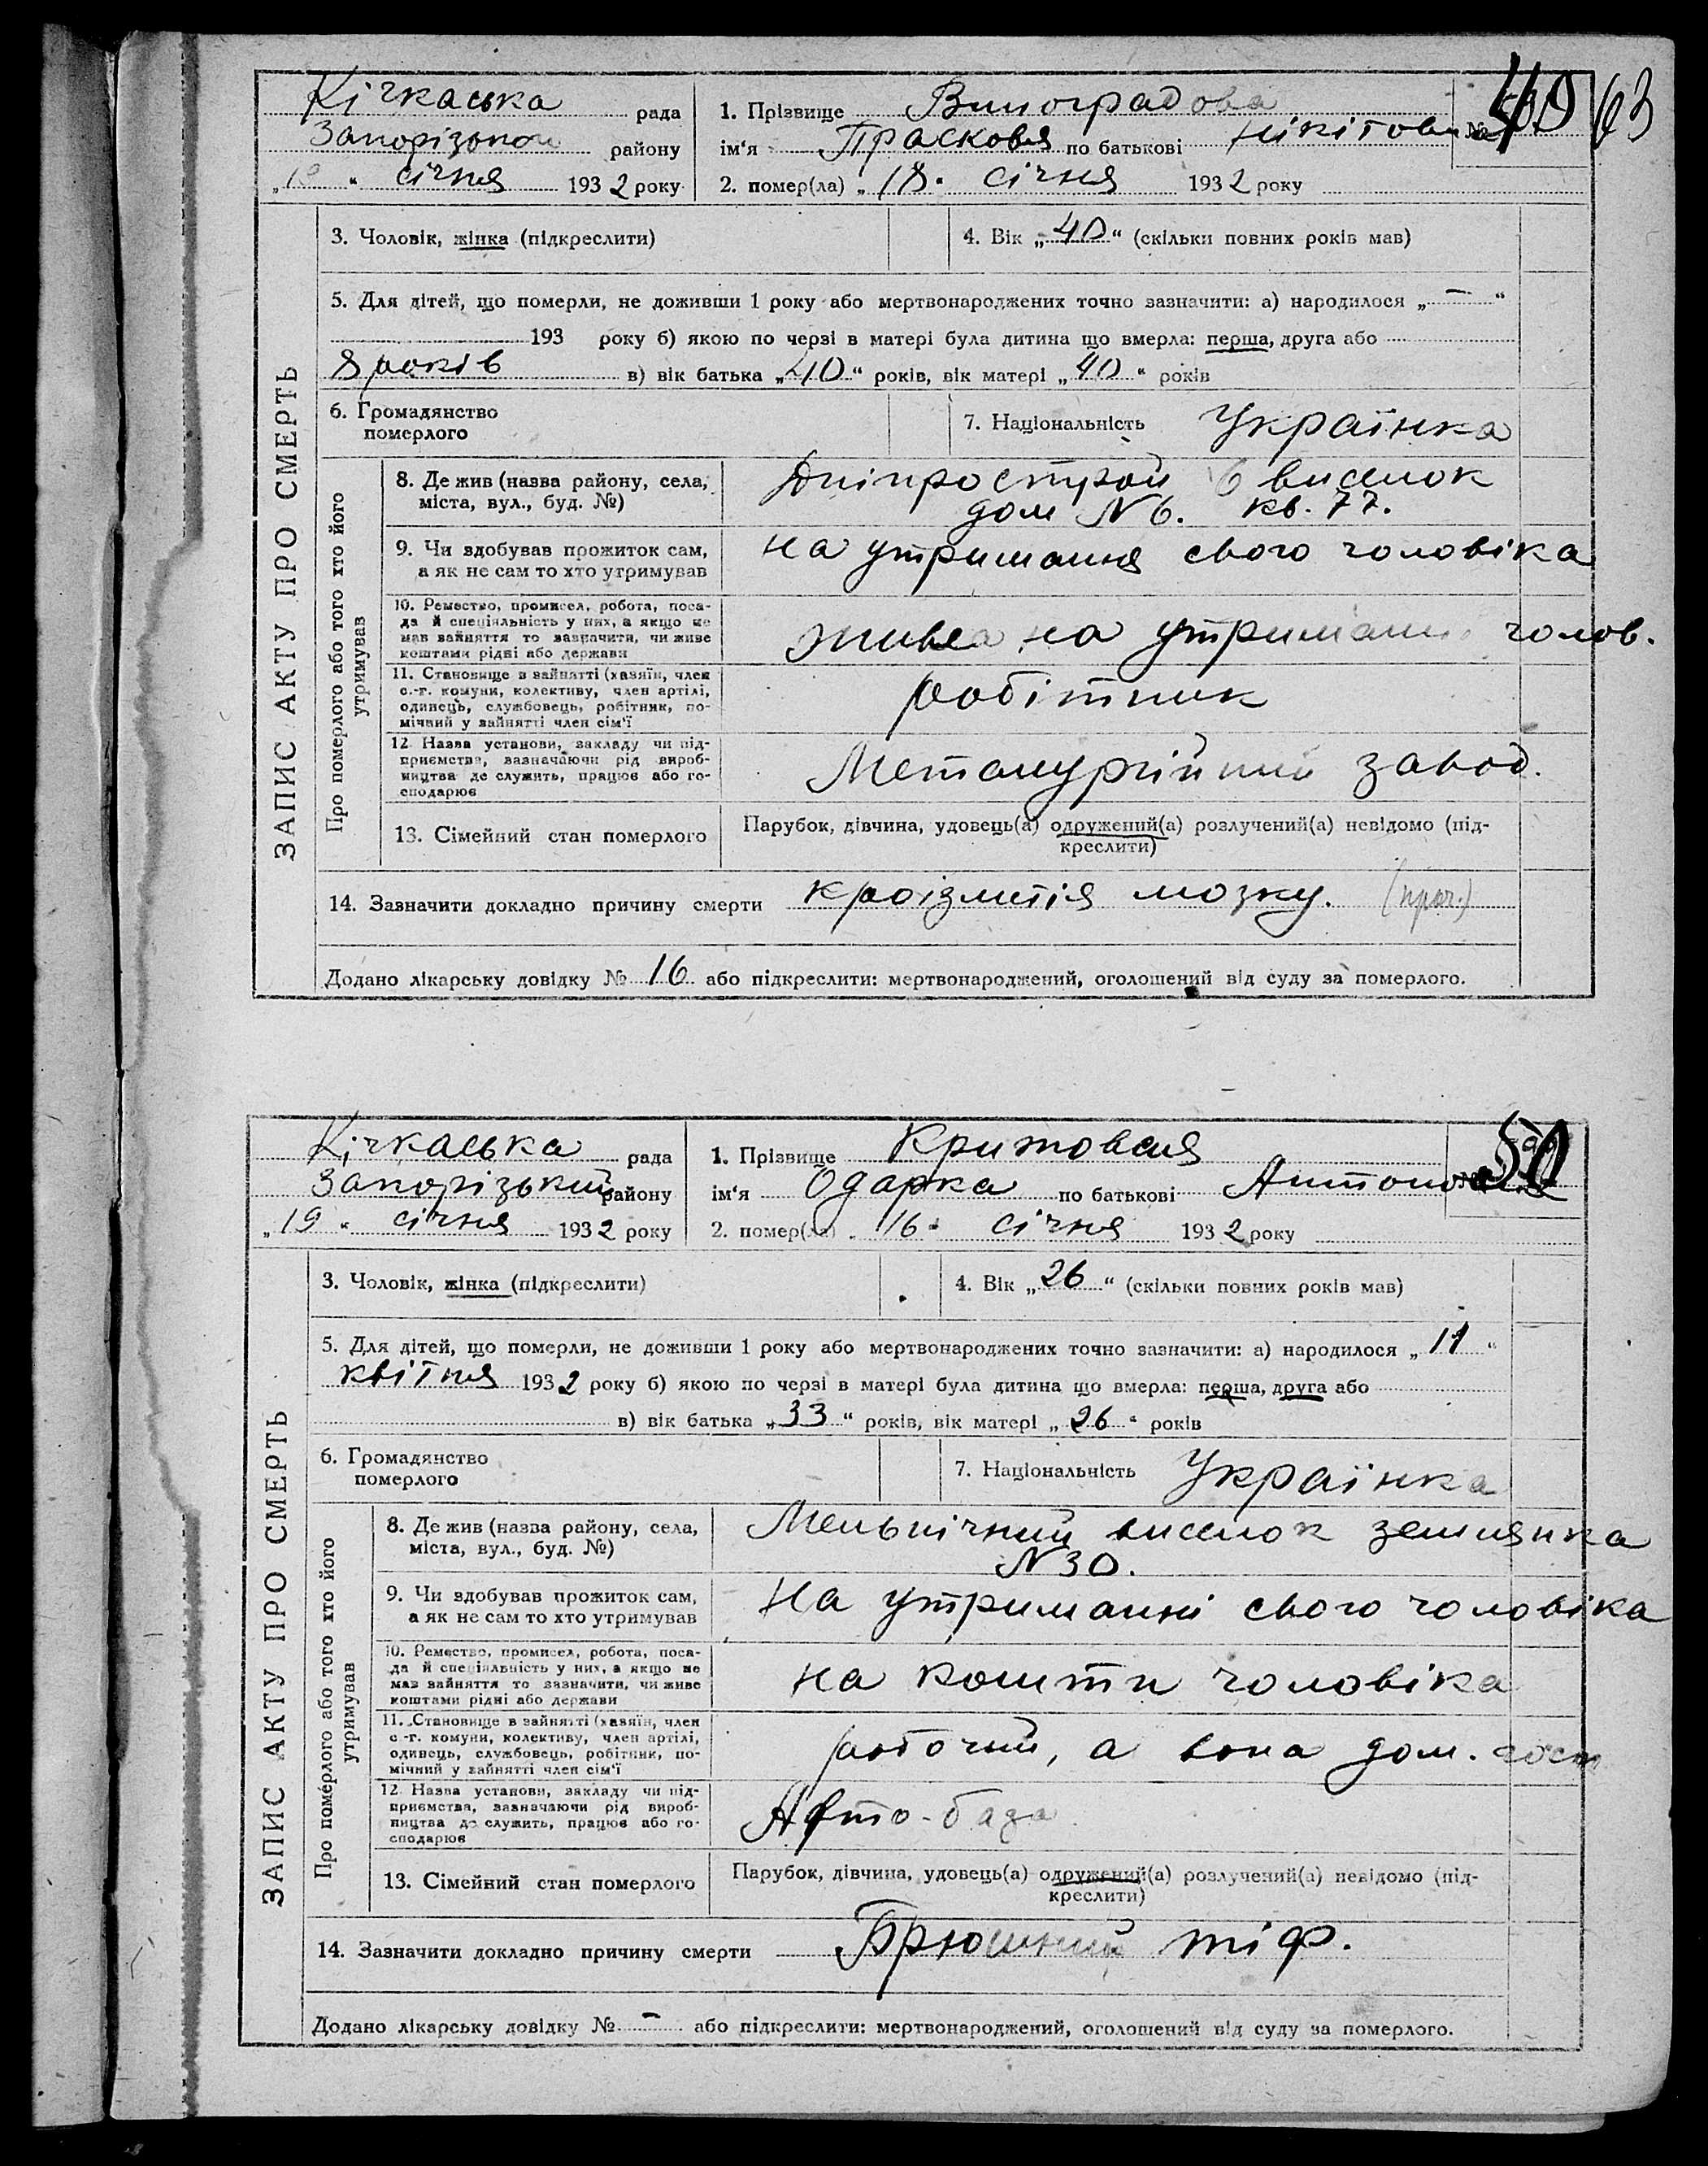 63
Кічкаська рада
Запорізького району
„19“ січня 1932 року
1. Прізвище Виноградова
ім'я Прасковя по батькові Нікітовна №
2. помер(ла) „18“ січня 1932 року
ЗАПИС АКТУ ПРО СМЕРТЬ
3. Чоловік, жінка (підкреслити) 4. Вік „40“ (скільки повних років мав)
5. Для дітей, що померли, не доживши 1 року або мертвонароджених точно зазначити: а) народилося „—“
193 року б) якою по черзі в матері була дитина що вмерла: перша, друга або
8 років в) вік батька „40“ років, вік матері „40“ років
6. Громадянство
померлого
7. Національність Українка
Про померлого або того хто його
утримував
8. Де жив (назва району, села,
міста, вул., буд. №)
Дніпрострой 6 виселок
дом N 6. кв. 77.
9. Чи здобував прожиток сам,
а як не сам то хто утримував
на утримання свого чоловіка
10. Ремество, промисел, робота, поса-
да й спеціяльність у них, а якщо не
мав зайняття то зазначити, чи живе
коштами рідні або держави
на утриманні чолов.
11. Становище в зайнятті (хазяїн, член
с.-г. комуни, колективу, член артілі,
одинець, службовець, робітник, по-
мічний у зайнятті член сім'ї
робітник
12. Назва установи, закладу чи під-
приємства, зазначаючи рід вироб-
ництва де служить, працює або го-
сподарює
Металургійний завод.
13. Сімейний стан померлого
Парубок, дівчина, удовець(а) одружений(а) розлучений(а) невідомо (під-
креслити)
14. Зазначити докладно причину смерти мозку.
Додано лікарську довідку № 16 або підкреслити: мертвонароджений, оголошений від суду за померлого.
Кічкаська рада
Запорізький району
„19“ січня 1932 року
1. Прізвище
ім'я Одарка по батькові 50
2. помер(ла) „16“ січня 1932 року
ЗАПИС АКТУ ПРО СМЕРТЬ
3. Чоловік, жінка (підкреслити) 4. Вік „26“ (скільки повних років мав)
5. Для дітей, що померли, не доживши 1 року або мертвонароджених точно зазначити: а) народилося „11“
квітня 1932 року б) якою по черзі в матері була дитина що вмерла: перша, друга або
в) вік батька „33“ років, вік матері „26“ років
6. Громадянство
померлого
7. Національність Українка
Про померлого або того хто його
утримував
8. Де жив (назва району, села,
міста, вул., буд. №)
Мельнічний виселок землянка
N 30.
9. Чи здобував прожиток сам,
а як не сам то хто утримував
на утриманні свого чоловіка
10. Ремество, промисел, робота, поса-
да й спеціяльність у них, а якщо не
мав зайняття то зазначити, чи живе
коштами рідні або держави
на кошти чоловіка
11. Становище в зайнятті (хазяїн, член
с.-г. комуни, колективу, член артілі,
одинець, службовець, робітник, по-
мічний у зайнятті член сім'ї
робочий, а вона дом. госп
12. Назва установи, закладу чи під-
приємства, зазначаючи рід вироб-
ництва де служить, працює або го-
сподарює
Авто-база
13. Сімейний стан померлого
Парубок, дівчина, удовець(а) одружений(а) розлучений(а) невідомо (під-
креслити)
14. Зазначити докладно причину смерти Брюшний тіф.
Додано лікарську довідку № – або підкреслити: мертвонароджений, оголошений від суду за померлого.